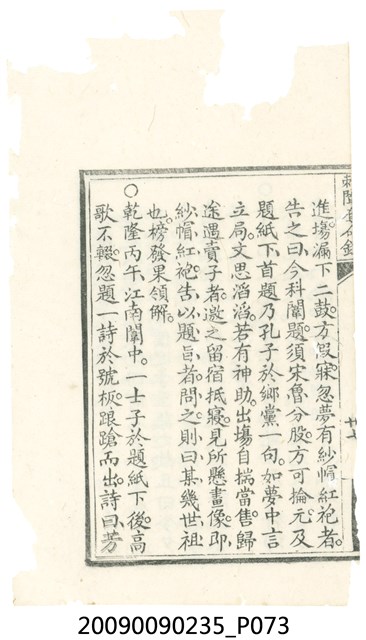 進場漏下二鼓方假寐忽夢有紗帽紅袍者
告之曰今科闈題須宋魯分股方可掄元及
題紙下首題乃孔子於鄉黨一句如夢中言
立局文思滔滔若有神助出場自揣當售歸
途遇賣子者邀之留宿抵寢見所懸畫像即
紗帽紅袍告以題旨者問之則曰某幾世祖
也榜發果領解
○乾隆丙午江南闈中一士子於題紙下後高
歌不輟忽題一詩於號板踉蹌而出詩曰芳
20090090235_P073